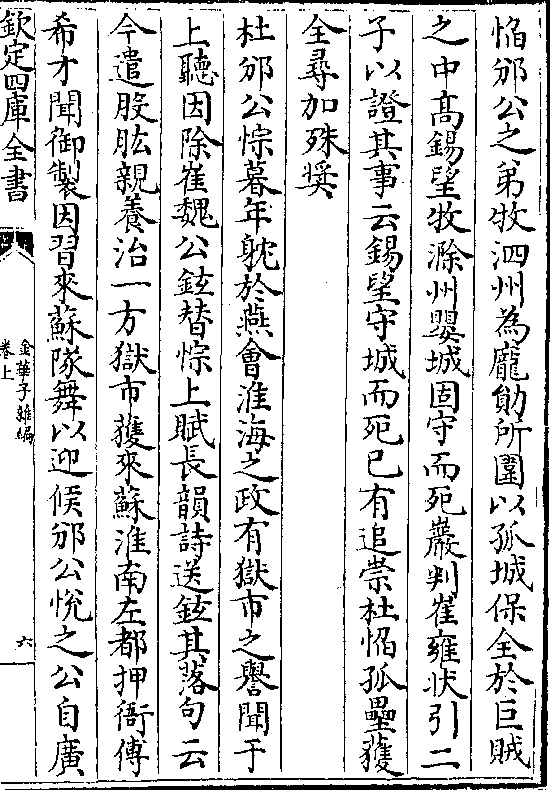 慆邠公之弟牧泗州為龎勛所圍以孤城保全於巨賊
之中髙錫望牧滁州嬰城固守而死嚴判崔雍狀引二
子以證其事云錫望守城而死已有追崇杜慆孤壘獲
全尋加殊奨
杜邠公悰暮年躭於燕會淮海之政有獄市之譽聞于
上聽因除崔魏公鉉替悰上賦長韻詩送鉉其落句云
今遣股肱親養治一方獄市獲來蘇淮南左都押衙傅
希才聞御製因習來蘇隊舞以迎候邠公恱之公自廣
欽定四庫全書
金華子雜編
卷上
六